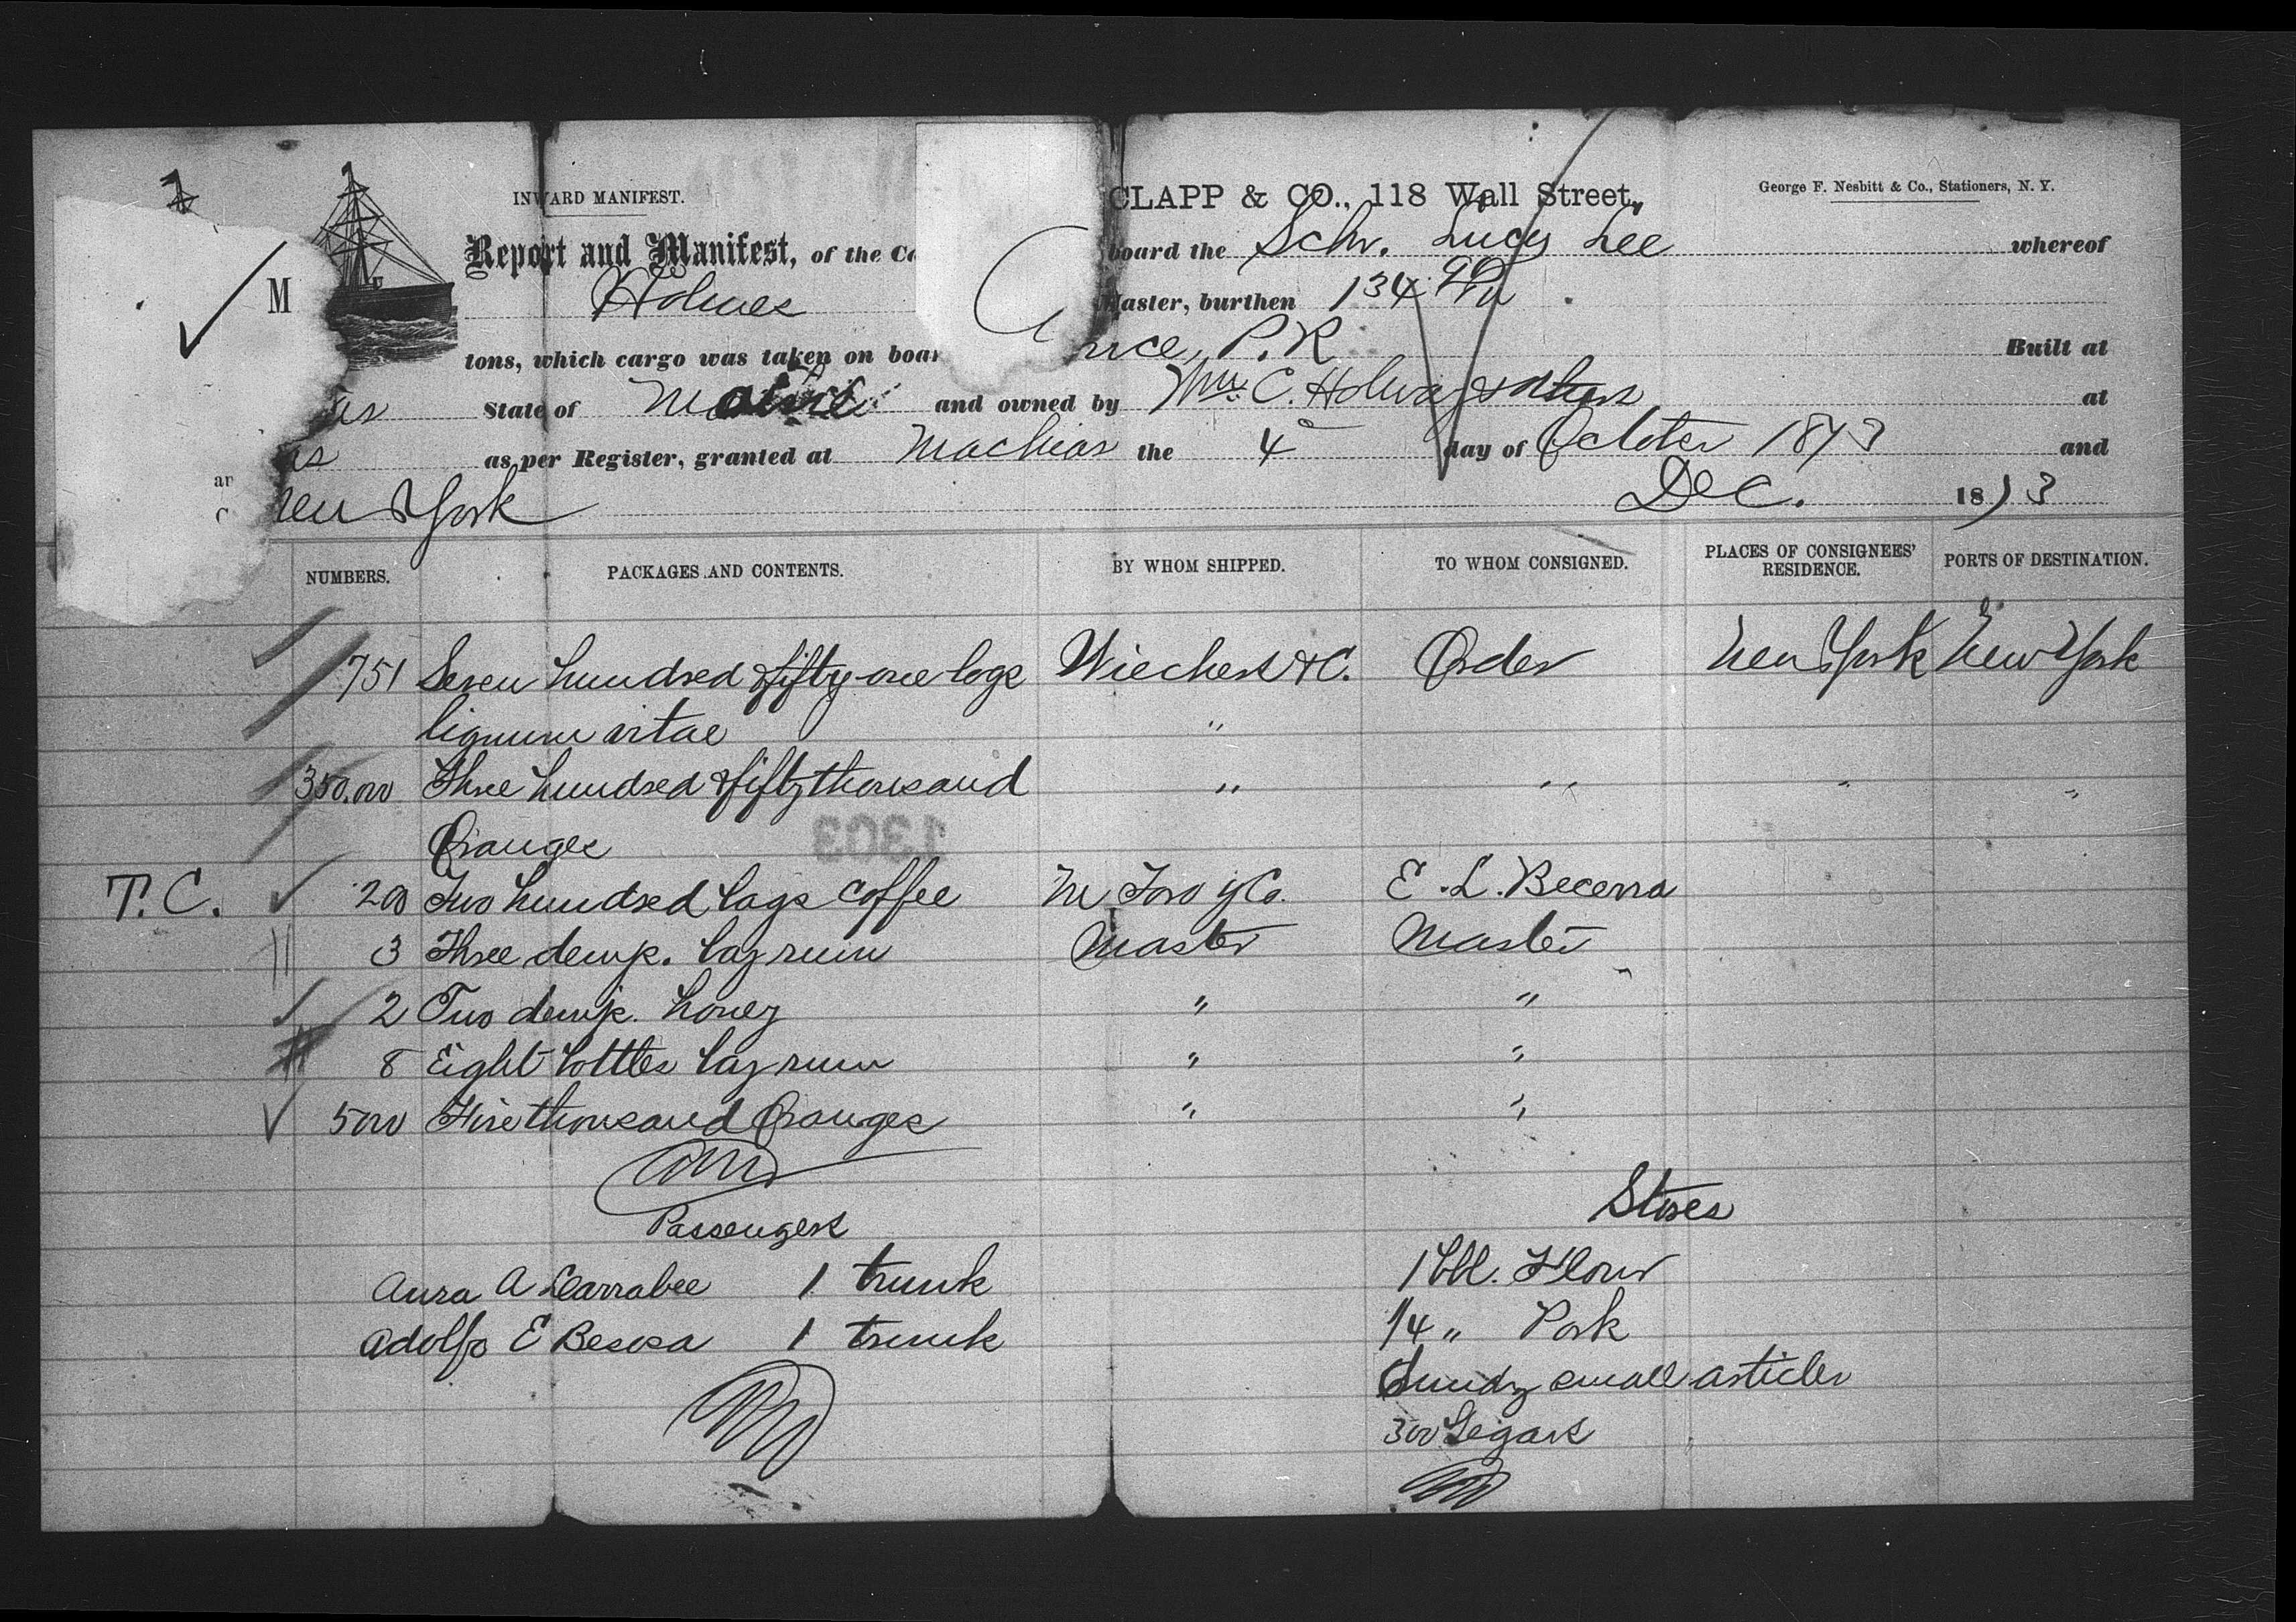 INWARD MANIFEST.
CLAPP & CO., 118 Wall Street,
George F. Nesbitt & Co., Stationers, N. Y.
Report and Manifest, of the board the Schr. Lucy Lee whereof
M Holmes Master, burthen 134
tons, which cargo was taken on P.R Built at
State of Maine and owned by Wm. C. Holway & others at
as per Register, granted at Machias the 4 day of October 1873 and
New York Dec. 1873
NUMBERS. PACKAGES AND CONTENTS. BY WHOM SHIPPED. TO WHOM CONSIGNED. PLACES OF CONSIGNEES' RESIDENCE. PORTS OF DESTINATION.
751 Seven hundred & fifty one logs Wiechers & C. Order New York New York
lignum vitae "
350.000 Three hundred & fifty thousand " " " "
Oranges
1303
T.C. 200 Two hundred bags coffee M Toro y Co. E. L. Becerra
3 Three demj. bay rum Master Master
2 Two demj. honey " "
8 Eight bottles bay rum " "
5000 Five thousand Oranges " "
Passengers
Stores
Aura A Larrabee 1 trunk
1 bbl. Flour
Adolfo E Besosa 1 trunk
1/4 " Pork
Sundry small articles
300 Segars